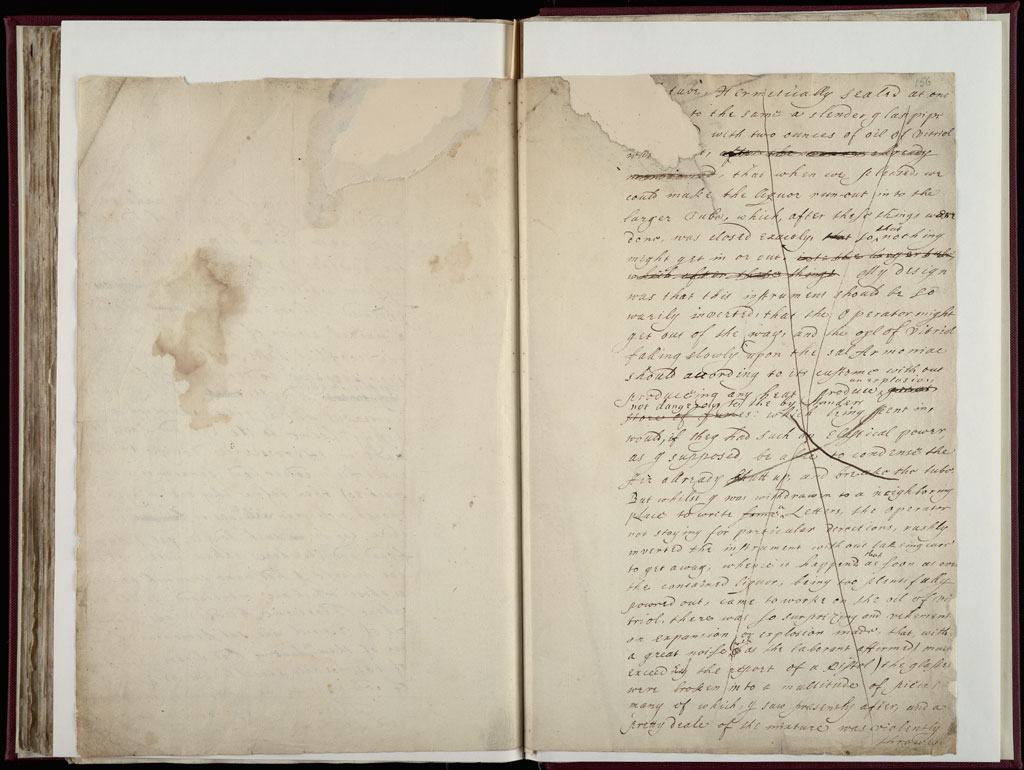 156
Hermetically sealed at one
to the same a slender glass pipe
with two ounces of oil of Vitriol
after the manner already
mentioned, that when we pleased we
could make the liquor run out into the
larger Tube, which, after these things were
done, was closed exactly, that so, that nothing
might get in or out, into the larger tube
which after these things My design
was that this instrument should be so
warily inverted, that the Operator might
get out of the way, and the oyl of Vitriol
falling slowly upon the sal Armoniac
should according to its custome without
producing any heat produce an explosion,
not dangerous to the by standers
store of fumes: which being spent in,
would, if they had such an Elastical power,
as I supposed be able to condense the
Air already shutt up, and breake the tube.
But whilst I was withdrawn to a neighboring
place to write some a Letters, the operator
not staying for particular Directions, rashly
inverted the instrument without taking care
to get away, whence it happend that as soon as ever
the contained liquor, being too plentifully
powred out, came to worke on the oil of Vi
triol, there was so surprizing and vehement
an expansion or explosion made, that with
a great noise (as the laborant affirmed) much
exceeding the report of a Pistol) the glasse
were broken into a multitude of pieces
many of which I saw presently after, and a
prety deale of the mixture was violently
thrown